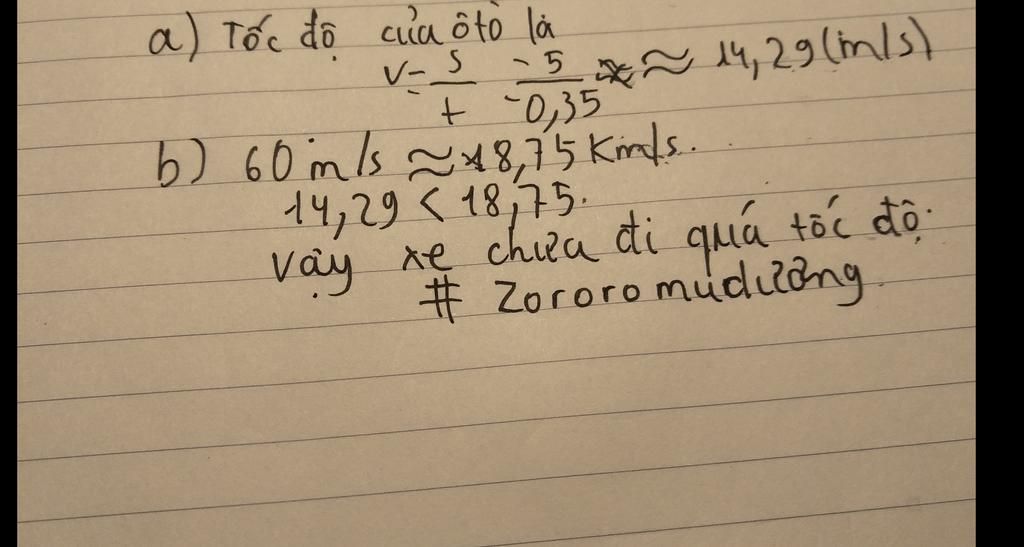 a) Tốc độ của ôtô là
v = s/t = 5/0,35 ≈ 14,29 (m/s)
b) 60 m/s ≈ 18,75 Km/s.
14,29 < 18,75.
Vậy xe chưa đi quá tốc độ.
# Zororomudường